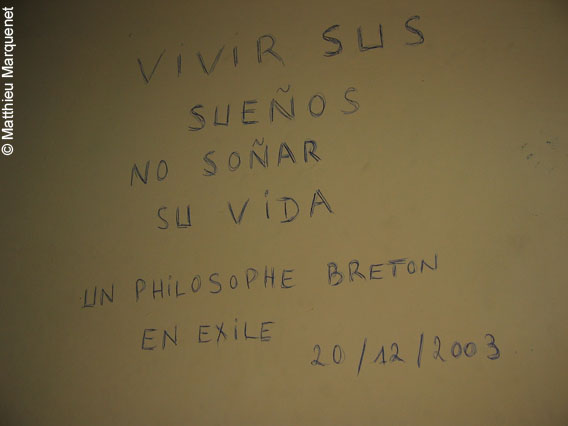 ViViR SUS
SUEÑOS
NO SOÑAR
SU ViDA
UN PHiLOSOPHE BRETON
EN EXiLE
20/12/2003
© Matthieu Marquenet